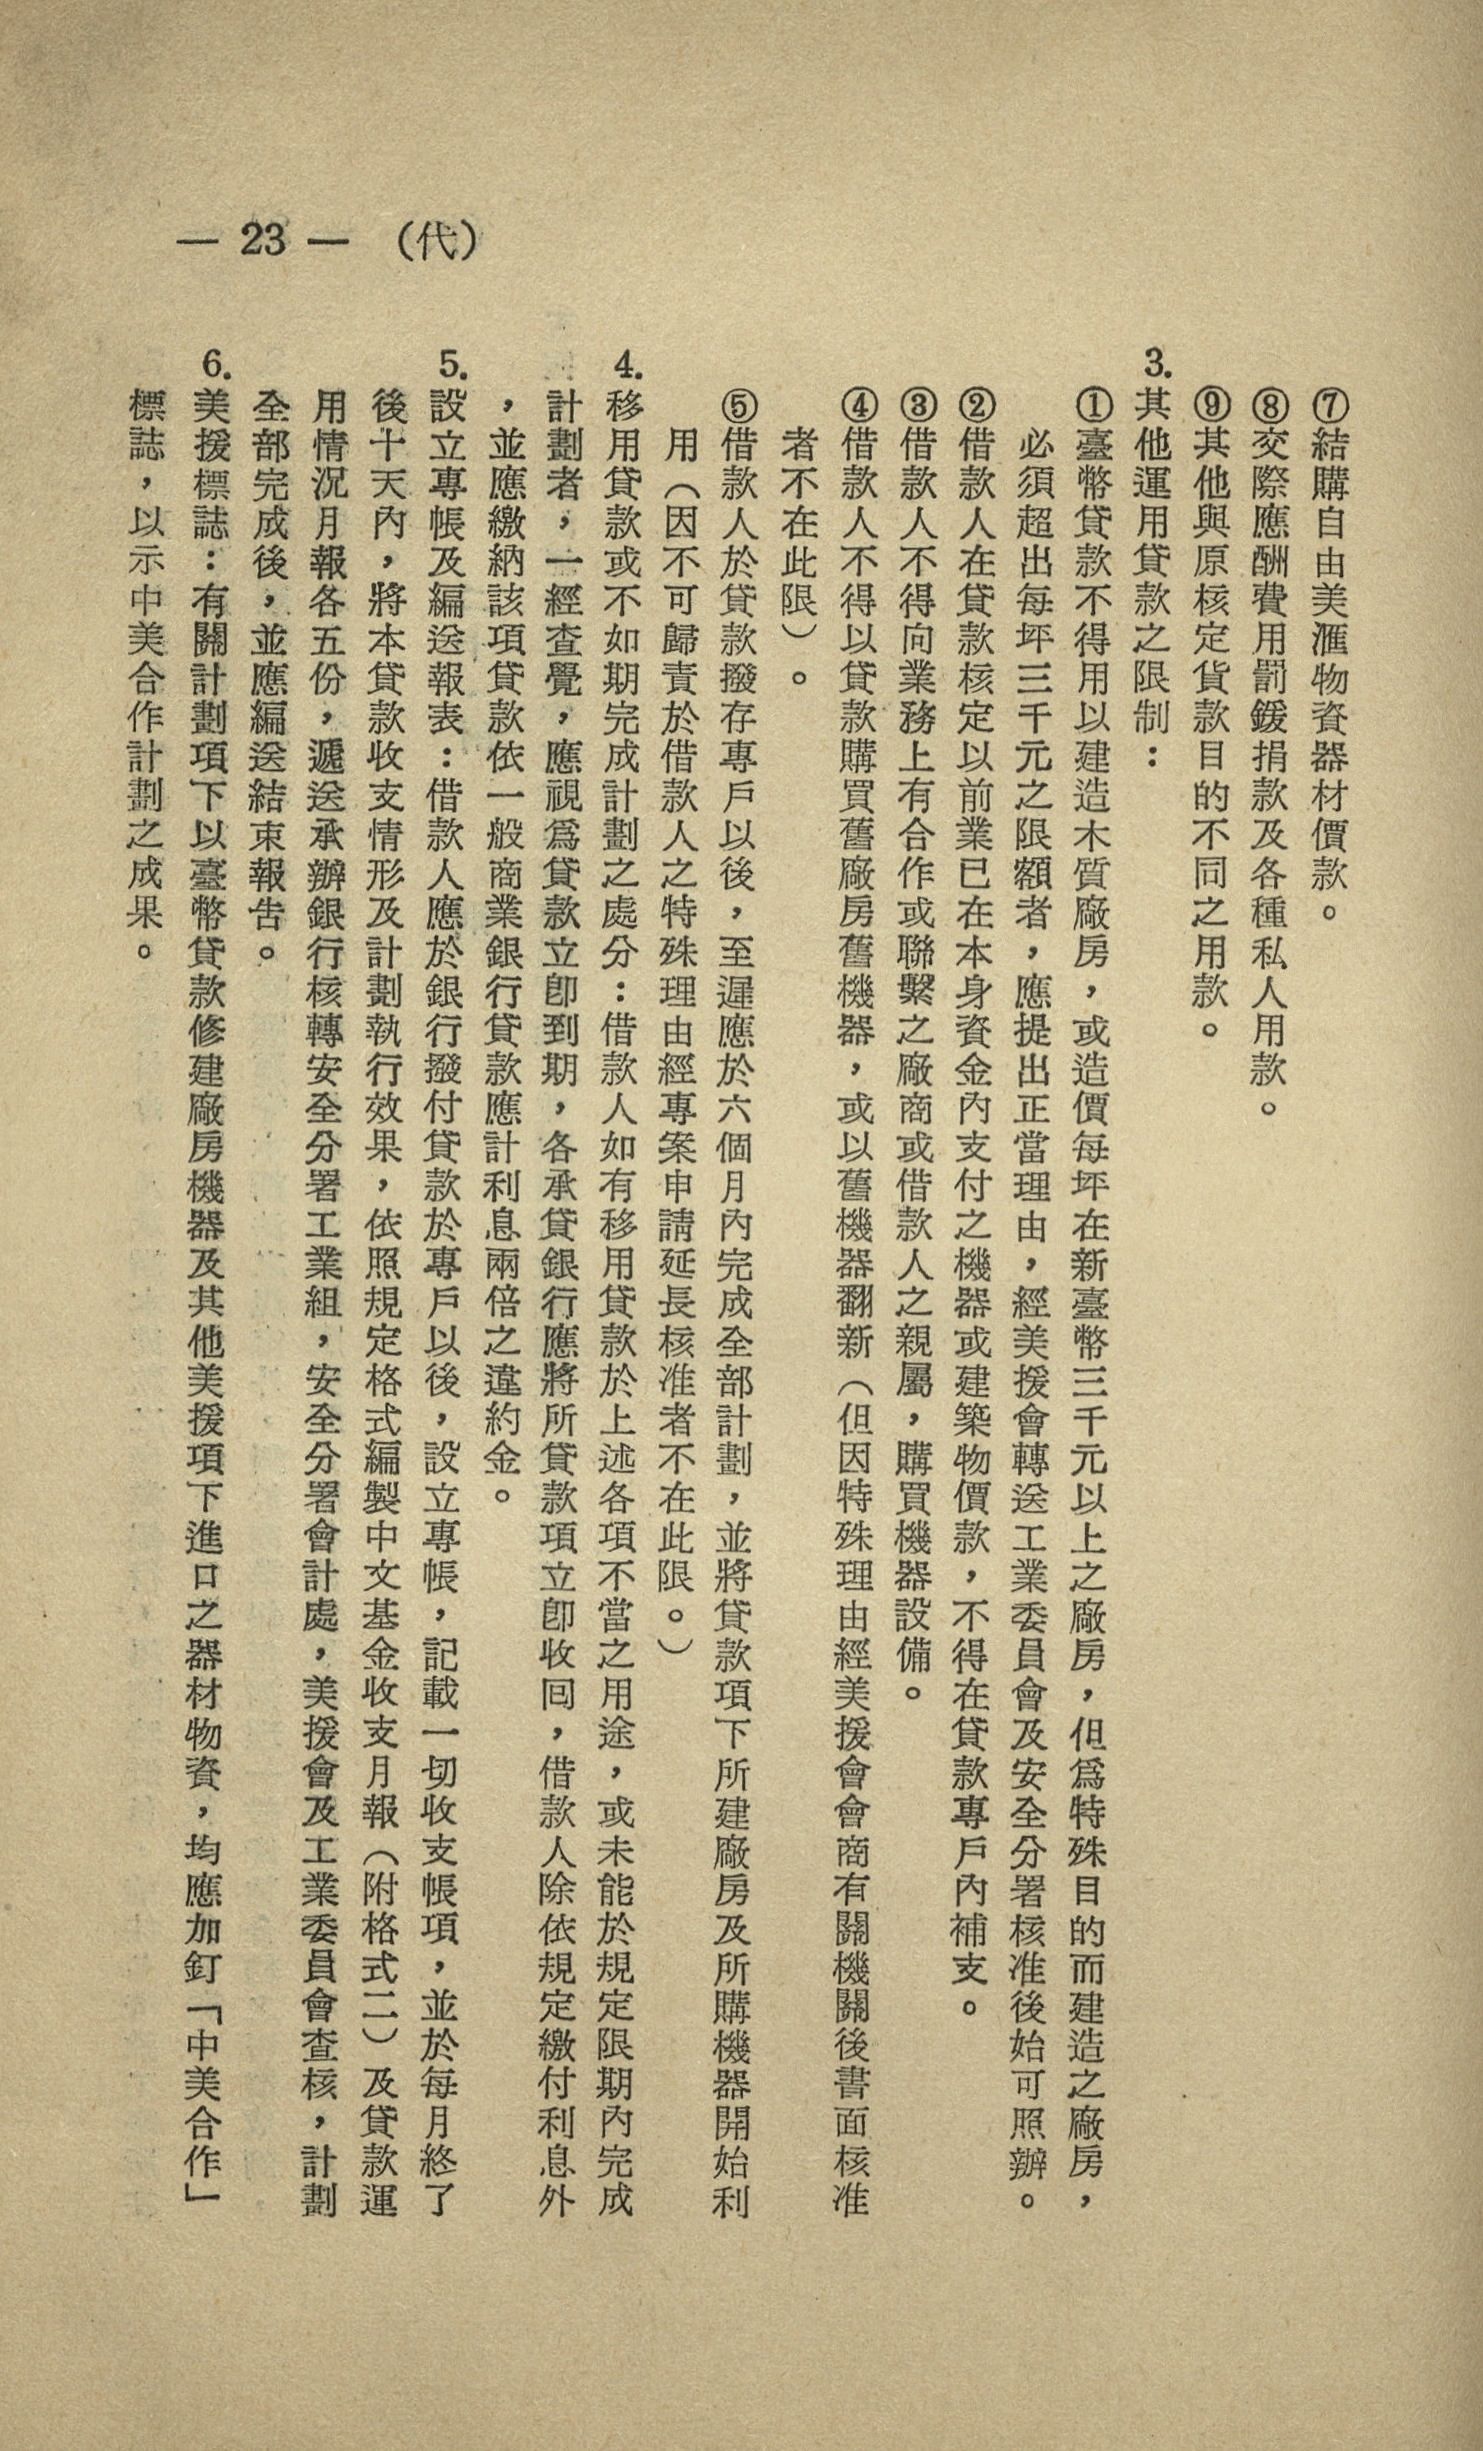 ⑦結購自由美滙物資器材價款。
⑧交際應酬費用罰鍰捐款及各種私人用款。
⑨其他與原核定貨款目的不同之用款。
3.其他運用貸款之限制：
①臺幣貸款不得用以建造木質廠房，或造價每坪在新臺幣三千元以上之廠房，但爲特殊目的而建造之廠房，
必須超出每坪三千元之限額者，應提出正當理由，經美援會轉送工業委員會及安全分署核准後始可照辦。
②借款人在貸款核定以前業已在本身資金內支付之機器或建築物價款，不得在貸款專戶內補支。
③借款人不得向業務上有合作或聯繫之廠商或借款人之親屬，購買機器設備。
④借款人不得以貸款購買舊廠房舊機器，或以舊機器翻新（但因特殊理由經美援會會商有關機關後書面核准
者不在此限）。
⑤借款人於貸款撥存專戶以後，至遲應於六個月內完成全部計劃，並將貸款項下所建廠房及所購機器開始利
用（因不可歸責於借款人之特殊理由經專案申請延長核准者不在此限。）
4.移用貸款或不如期完成計劃之處分：借款人如有移用貸款於上述各項不當之用途，或未能於規定限期內完成
計劃者，一經查覺，應視爲貸款立卽到期，各承貸銀行應將所貸款項立卽收囘，借款人除依規定繳付利息外
，並應繳納該項貸款依一般商業銀行貸款應計利息兩倍之違約金。
5.設立專帳及編送報表：借款人應於銀行撥付貸款於專戶以後，設立專帳，記載一切收支帳項，並於每月終了
後十天內，將本貸款收支情形及計劃執行效果，依照規定格式編製中文基金收支月報（附格式二）及貸款運
用情況月報各五份，遞送承辦銀行核轉安全分署工業組，安全分署會計處，美援會及工業委員會查核，計劃
全部完成後，並應編送結束報告。
6.美援標誌：有關計劃項下以臺幣貸款修建廠房機器及其他美援項下進口之器材物資，均應加釘「中美合作」
標誌，以示中美合作計劃之成果。
— 23 —（代）